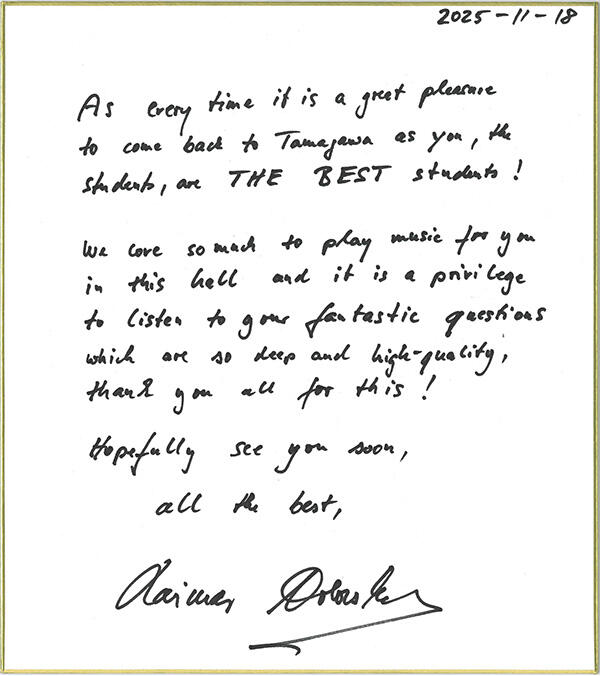 2025-11-18
As every time it is a great pleasure
to come back to Tamagawa as you, the
students, are THE BEST students!
We love so much to play music for you
in this hall and it is a privilege
to listen to your fantastic questions
which are so deep and high-quality,
thank you all for this!
Hopefully see you soon,
all the best,